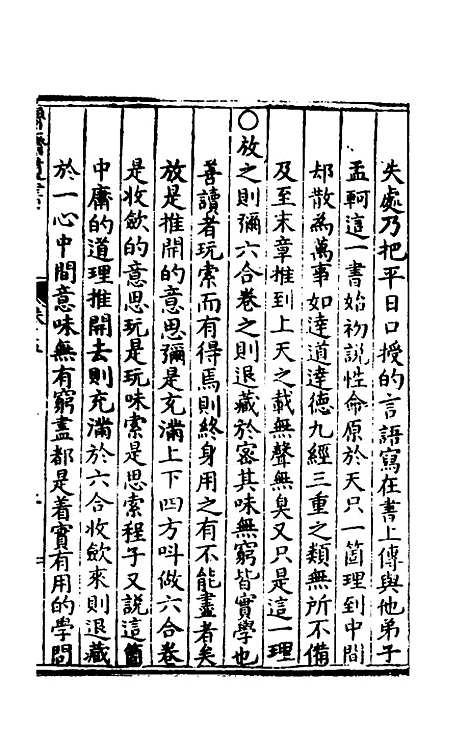 失處乃把平日口授的言語寫在書上傳與他弟子
孟軻這一書始初說性命原於天只一箇理到中間
却散為萬事如達道達德九經三重之類無所不備
及至末章推到上天之載無聲無臭又只是這一理
○放之則彌六合卷之則退藏於宻其味無窮皆實學也
善讀者玩索而有得焉則終身用之有不能盡者矣
放是推開的意思彌是充滿上下四方呌做六合卷
是收斂的意思玩是玩味索是思索程子又說這箇
中庸的道理推開去則充滿於六合收斂來則退藏
於一心中間意味無有窮盡都是着實有用的學問